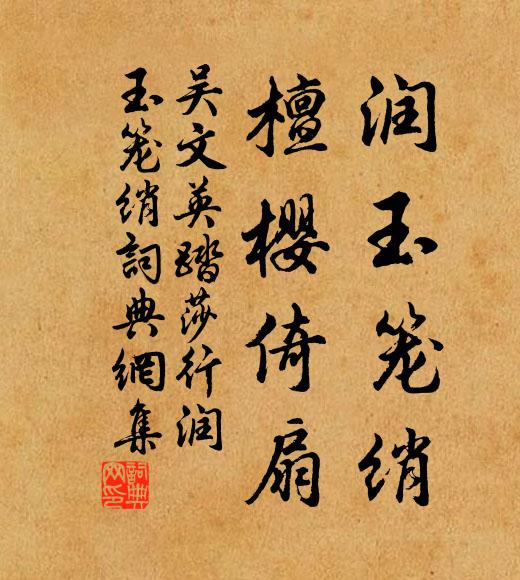 润玉笼绡
檀樱倚扇
吴文英踏莎行润
玉笼绡詞典網集
詞典
网印